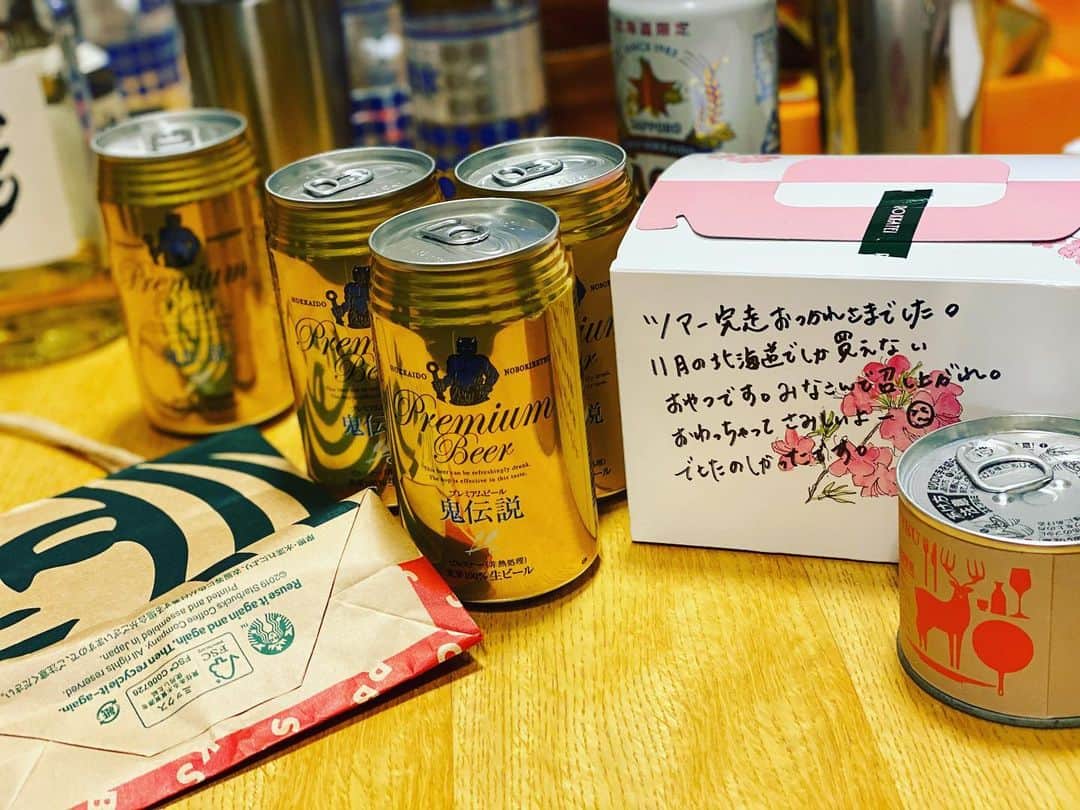 北海道限定
SINCE 1985
SAPPORO
Premium
HOKKAIDO
Premium
Beer
HOKKAIDO
NOBORIBETSU
Premium
Beer
This beer can be refreshingly drank.
The hop is effective in this taste.
プレミアムビール
鬼伝説
ピルスナー(非熱処理)
麦芽100%生ビール
ツアー完走おつかれさまでした。
11月の北海道でしか買えない
おやつです。みなさんで召し上がれ。
おわっちゃってさみしいよー
でもたのしかったです。
Reuse it again and again. Then recycle it-again.
©2019 Starbucks Coffee Company. All rights reserved.
Printed and assembled in Japan.
FSC
FSC® C006720
ミックス